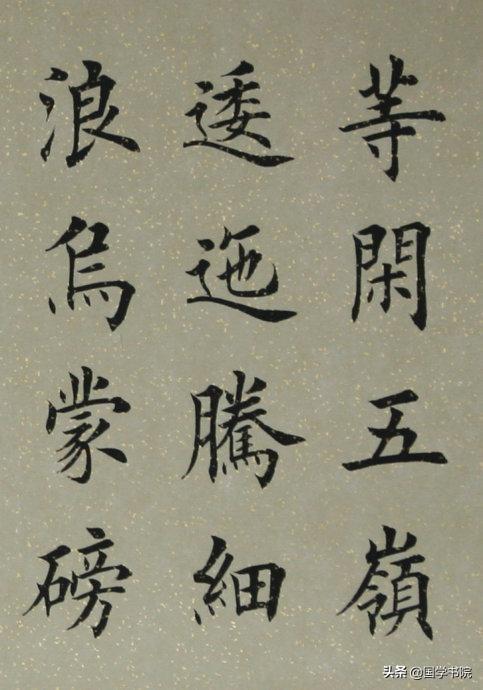 等闲五嶺
逶迤騰細
浪烏蒙磅
头条@国学书院